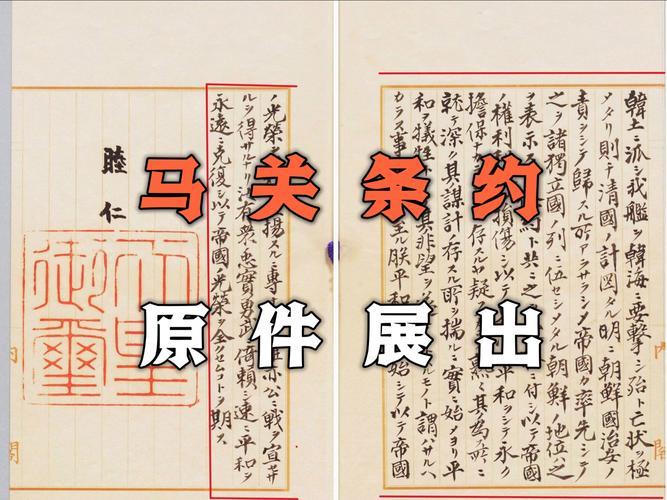 马关条约
原件展出
韓土ニ派シ我艦ヲ韓海ニ要撃シ殆ト亡狀ヲ極
メタリ則チ清國ノ計圖タル明ニ朝鮮國治安ノ
責ヲシテ歸スル所アラサラシメ帝國カ率先シテ
之ヲ諸獨立國ノ列ニ伍セシメタル朝鮮ノ地位ハ之
ヲ表示 約ト共ニ之 ニ付シ以テ帝國
ノ權利 損傷シ以テ 平和ヲシテ永ク
擔保ナカ 存スルヤ疑 熟其為ス所ニ
就テ深ク其謀計存スル所ヲ揣ルニ實ニ始メヨリ平
和ヲ犠牲 其非望ヲ モノト謂ハサルヘ
カラス事 至ル朕平和 始シテ以テ帝國
ノ光榮ヲ 揚スルニ專 亦公ニ戰ヲ宣セサ
ルヲ得サルナリ汝有衆忠實勇武 倚賴シ速ニ平和ヲ
永遠ニ克復シ以テ帝國ノ光榮ヲ全クセムコトヲ期ス
睦仁
天皇
御璽
内閣